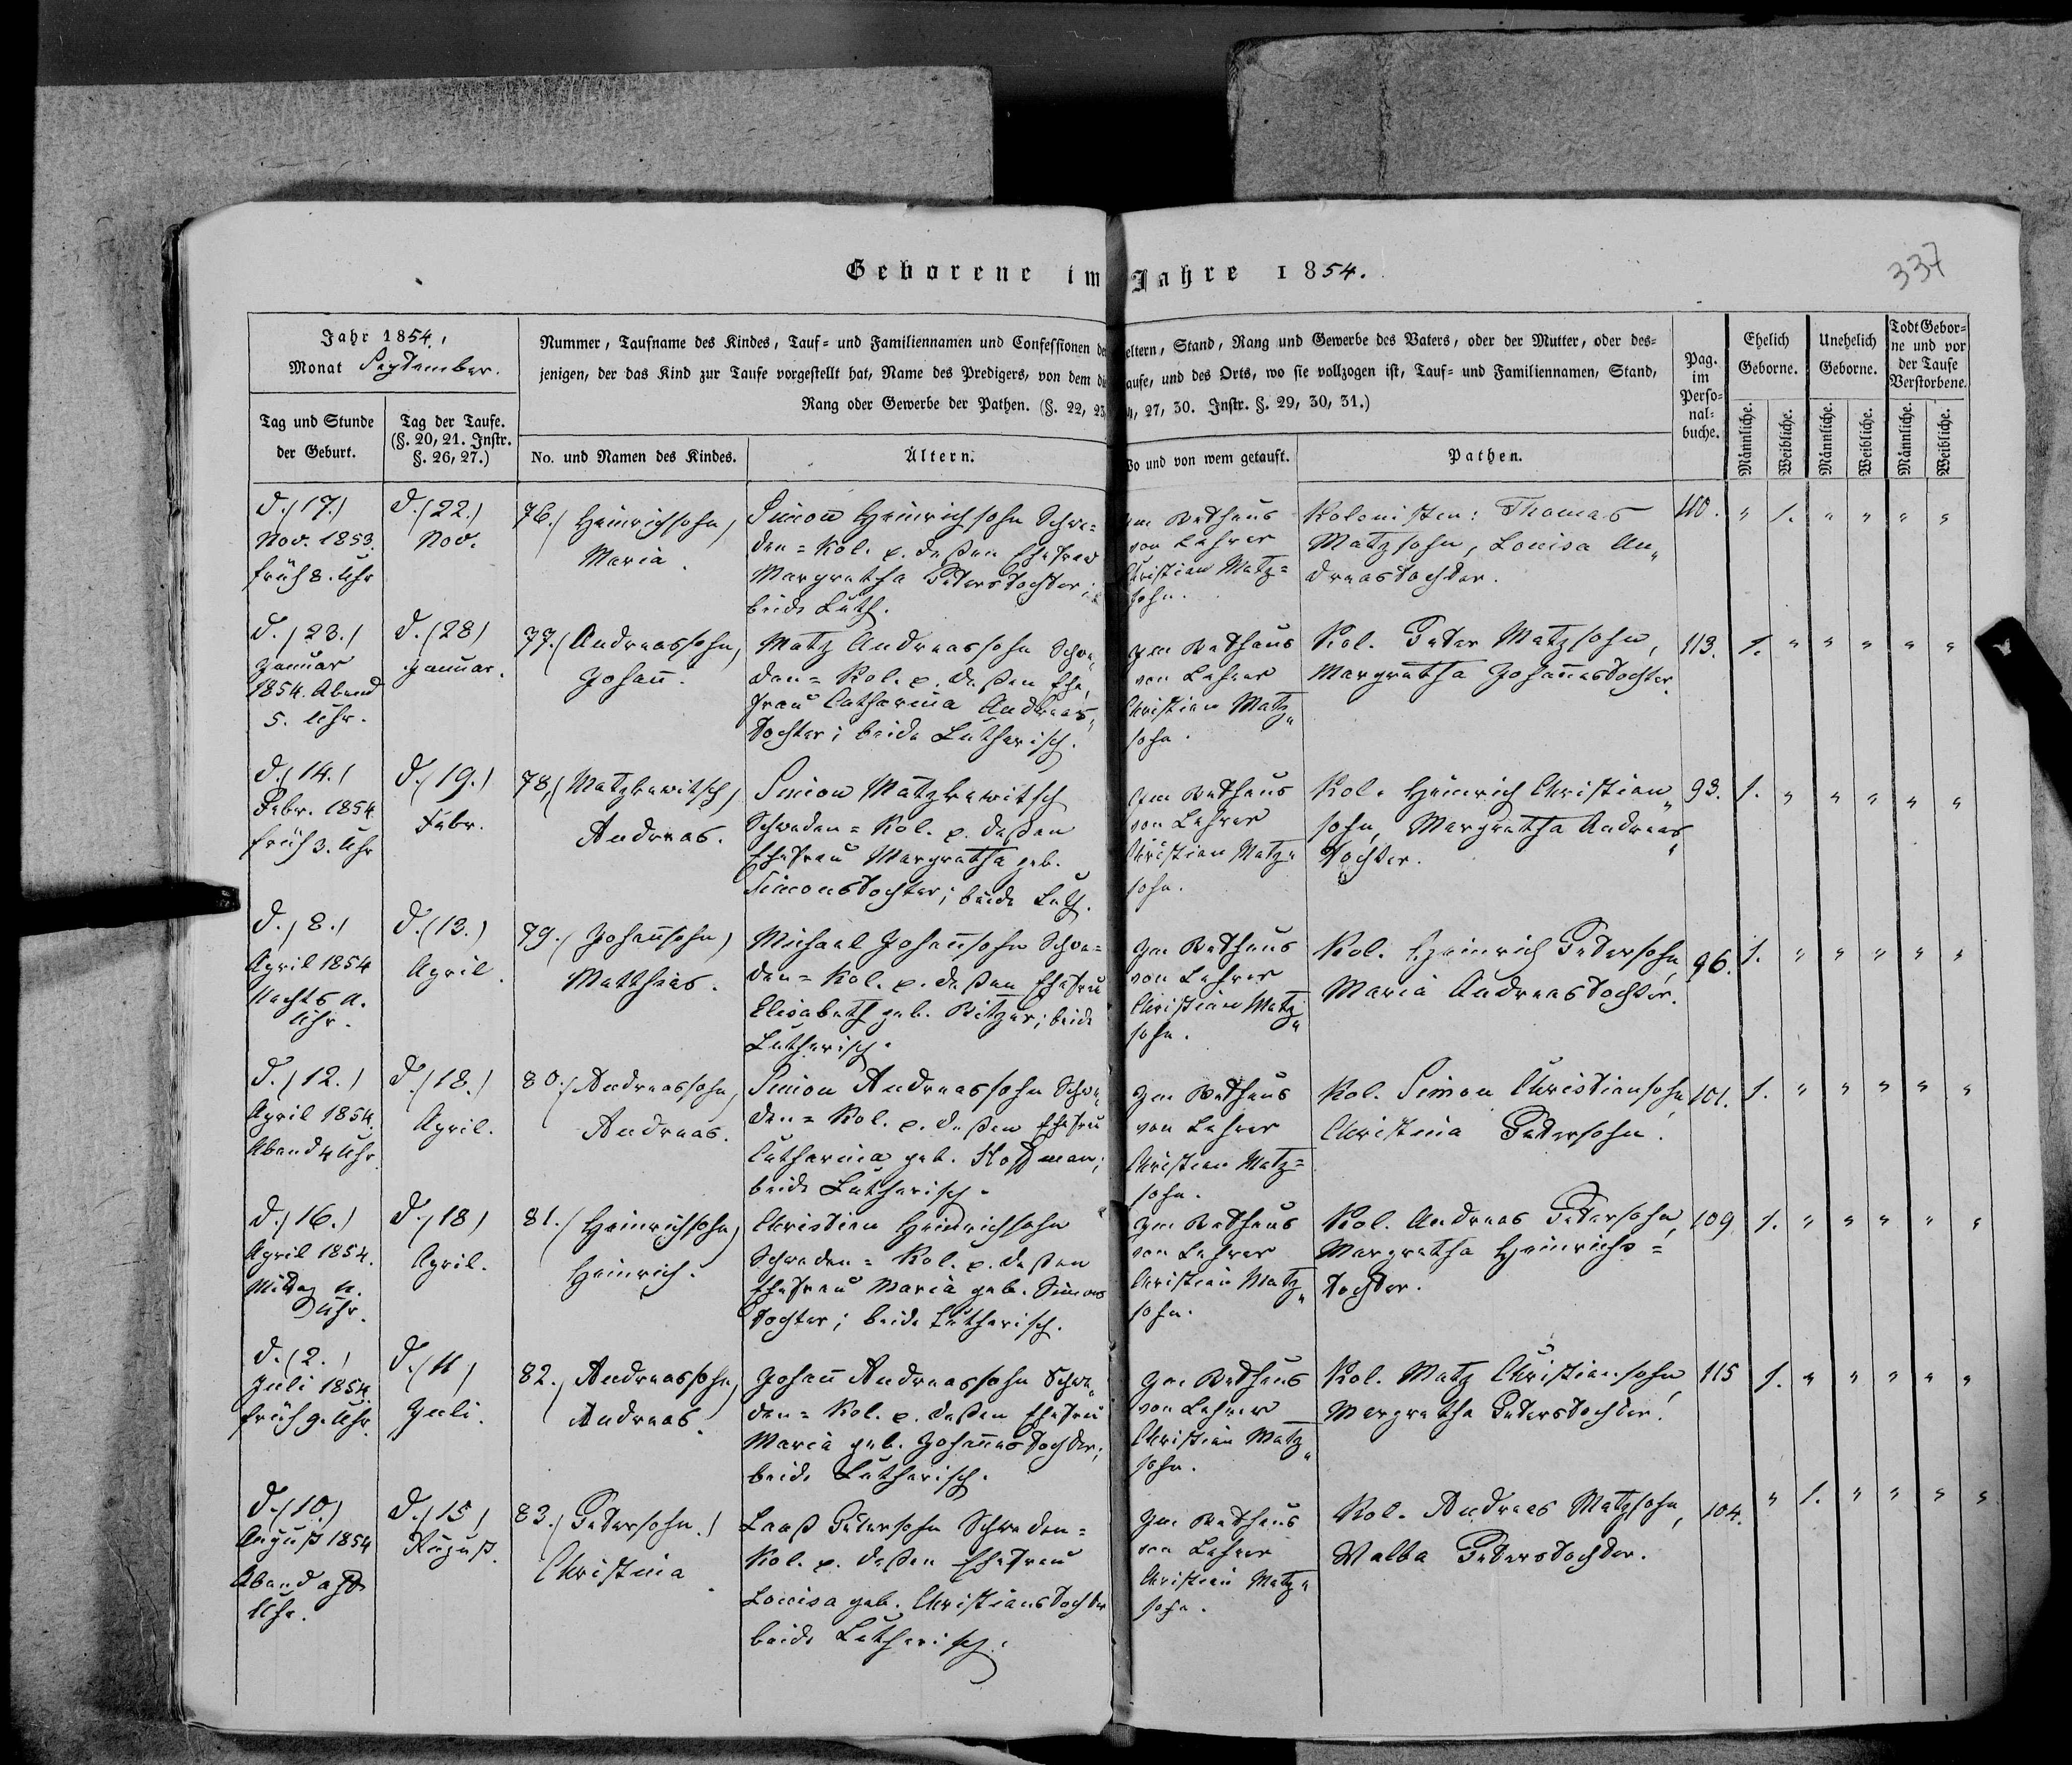 Geborene im Jahre 1854.
337
Jahr 1854,
Monat September.
Nummer, Taufname des Kindes, Tauf- und Familiennamen und Confessionen de
eltern, Stand, Rang und Gewerbe des Vaters, oder der Mutter, oder des-
jenigen, der das Kind zur Taufe vorgestellt hat, Name des Predigers, von dem di
aufe, und des Orts, wo sie vollzogen ist, Tauf- und Familiennamen, Stand,
Rang oder Gewerbe der Pathen. (§. 22, 23
4, 27, 30. Instr. §. 29, 30, 31.)
Pag. im Perso-nal-buche.
Ehelich Geborne.
Unehelich Geborne.
Todt Gebor-ne und vor der Taufe Verstorbene.
Tag und Stunde der Geburt.
Tag der Taufe. (§. 20, 21. Instr. §. 26, 27.)
No. und Namen des Kindes.
Ältern.
Wo und von wem getauft.
Pathen.
Männliche. Weibliche. Männliche. Weibliche. Männliche. Weibliche.
d./17./
Nov. 1853.
früh 8. Uhr
d./22./
Nov.
76./ Heinrichsohn,
Maria.
Simon Heinrichsohn Schwe-
den-Kol. u. deßen Ehefrau
Margretha Peterstochter;
beide Luth.
Im Bethaus
von Lehrer
Christian Matz-
sohn.
Kolonisten: Thomas
Matzsohn, Louisa An„
dreastochter.
110. " 1. " " " "
d./23./
Januar
1854. Abend
5. Uhr.
d./28/
Januar.
77./ Andreassohn,
Johan̅.
Matz Andreassohn Schwe„
den-Kol. u. deßen Ehe„
frau Catharina Andreas„
tochter; beide Lutherisch.
Im Bethaus
von Lehrer
Christian Matz„
sohn.
Kol. Peter Matzsohn,
Margretha Johan̅estochter.
113. 1. " " " " "
d./14./
Febr. 1854
früh 3. Uhr
d./19./
Febr.
78,/ Matzkewitsch,
Andreas.
Simon Matzkewitsch
Schweden-Kol. u. deßen
Ehefrau Margretha geb.
Simonstochter; beide Luth.
Im Bethaus
von Lehrer
Christian Matz„
sohn.
Kol. Heinrich Christian„
sohn, Margretha Andreas„
tochter.
93. 1. " " " " "
d./8./
April 1854
Nachts 11.
Uhr.
d./13./
April.
79./ Johan̅sohn,
Matthias.
Michael Johan̅sohn Schwe-
den-Kol. u. deßen Ehefrau
Elisabeth geb. Ritzer; beide
Lutherisch.
Im Bethaus
von Lehrer
Christian Matz„
sohn.
Kol. Heinrich Petersohn,
Maria Andreastochter.
96. 1. " " " " "
d./12./
April 1854.
Abend 4 Uhr.
d./18./
April.
80./ Andreassohn,
Andreas.
Simon Andreassohn Schwe„
den-Kol. u. deßen Ehefrau
Catharina geb. Hoffman;
beide Lutherisch.
Im Bethaus
von Lehrer
Christian Matz-
sohn.
Kol. Simon Christiansohn,
Christina Petersohn.
101. 1. " " " " "
d./16./
April 1854.
Mittag 11.
Uhr.
d./18/
April.
81./ Heinrichsohn,
Heinrich.
Christian Heinrichsohn
Schweden-Kol. u. deßen
Ehefrau Maria geb. Simons
tochter; beide Lutherisch.
Im Bethaus
von Lehrer
Christian Matz„
sohn.
Kol. Andreas Petersohn,
Margretha Heinrichs-
tochter.
109 1. " " " " "
d./2./
Juli 1854.
früh 9. Uhr.
d./11/
Juli.
82./ Andreassohn,
Andreas.
Johan̅ Andreassohn Schwe„
den-Kol. u. deßen Ehefrau
Maria geb. Johan̅estochter;
beide Lutherisch.
Im Bethaus
von Lehrer
Christian Matz„
sohn.
Kol. Matz Christiansohn,
Margretha Peterstochter.
115 1. " " " " "
d./10/
August 1854
Abend acht
Uhr.
d./15/
August.
83./ Petersohn./
Christina.
Laaß Petersohn Schweden-
Kol. u. deßen Ehefrau
Louisa geb. Christianstochter
beide Lutherisch.
Im Bethaus
von Lehrer
Christian Matz„
sohn.
Kol. Andreas Matzsohn,
Walba Peterstochter.
104. " 1. " " " "